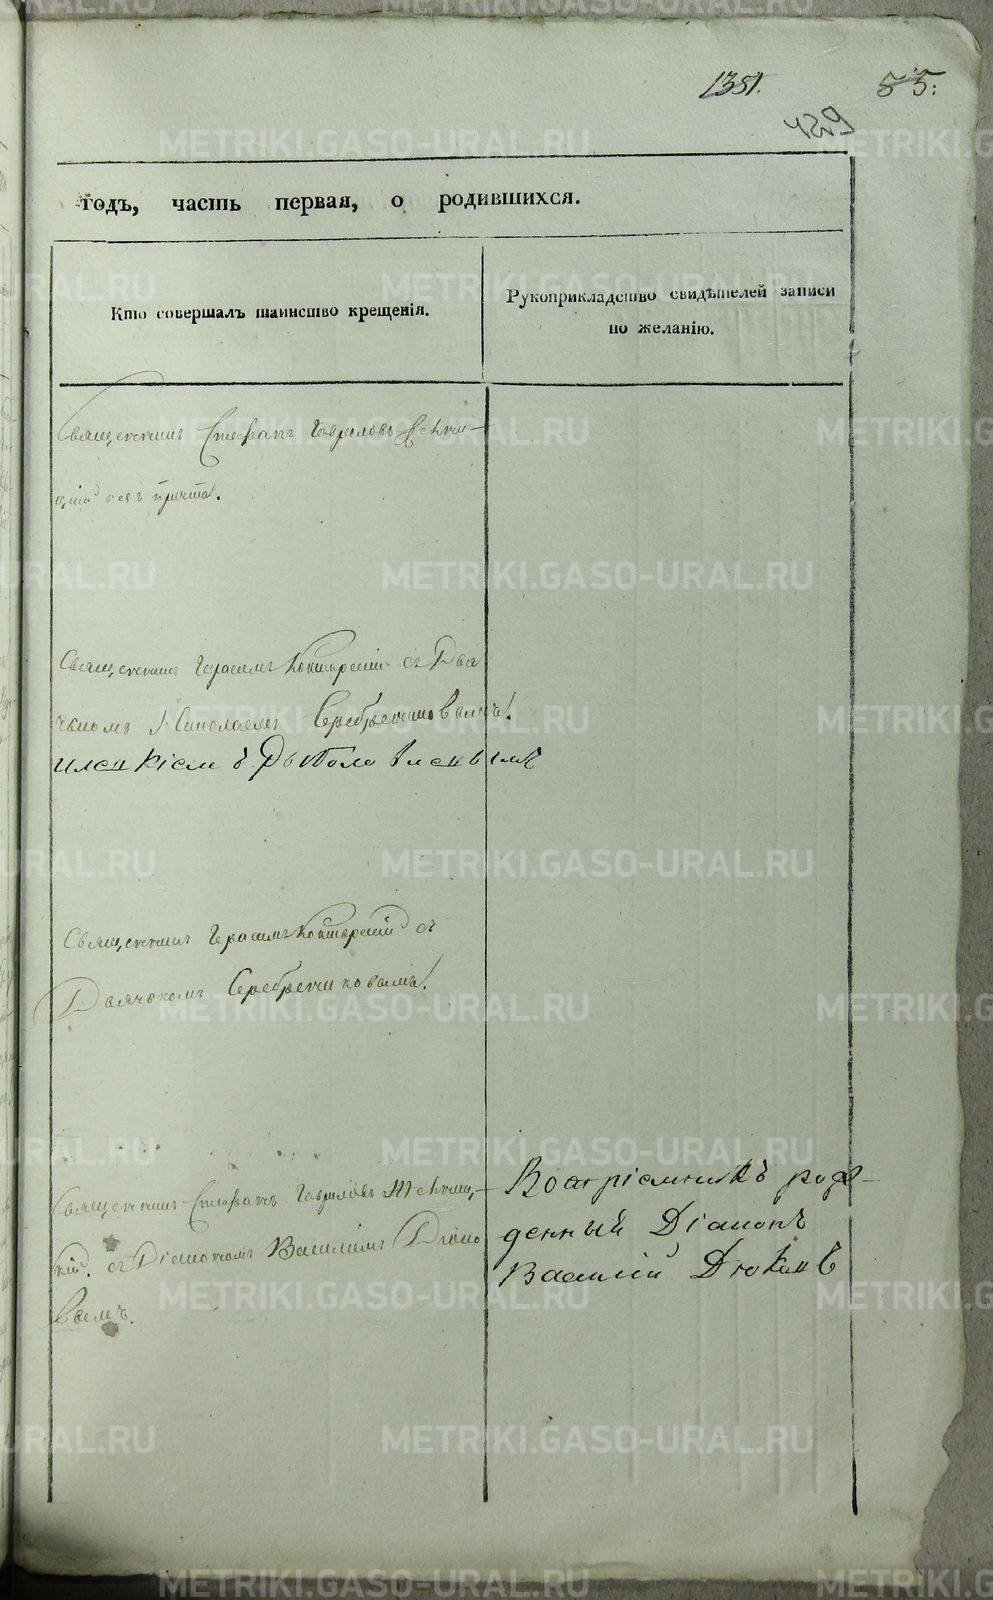 1381.
55:
459
годъ, часть первая, о родившихся.
Кто совершалъ таинство крещенія.
Рукоприкладство свидѣтелей записи
по желанію.
Священникъ Стефанъ Гавриловъ
безъ причта.
Священникъ Герасимъ Конторскій съ Дья
чкомъ Николаемъ Серебрениковымъ.
Священникъ Герасимъ Конторскій съ
Дьячкомъ Серебрениковымъ.
Священникъ Стефанъ Гавриловъ
кій. съ Діакономъ Василіемъ Дюко
вымъ.
Воспріемникъ рож
денный Діаконъ
Василій Дюковъ
METRIKI.GASO-URAL.RU